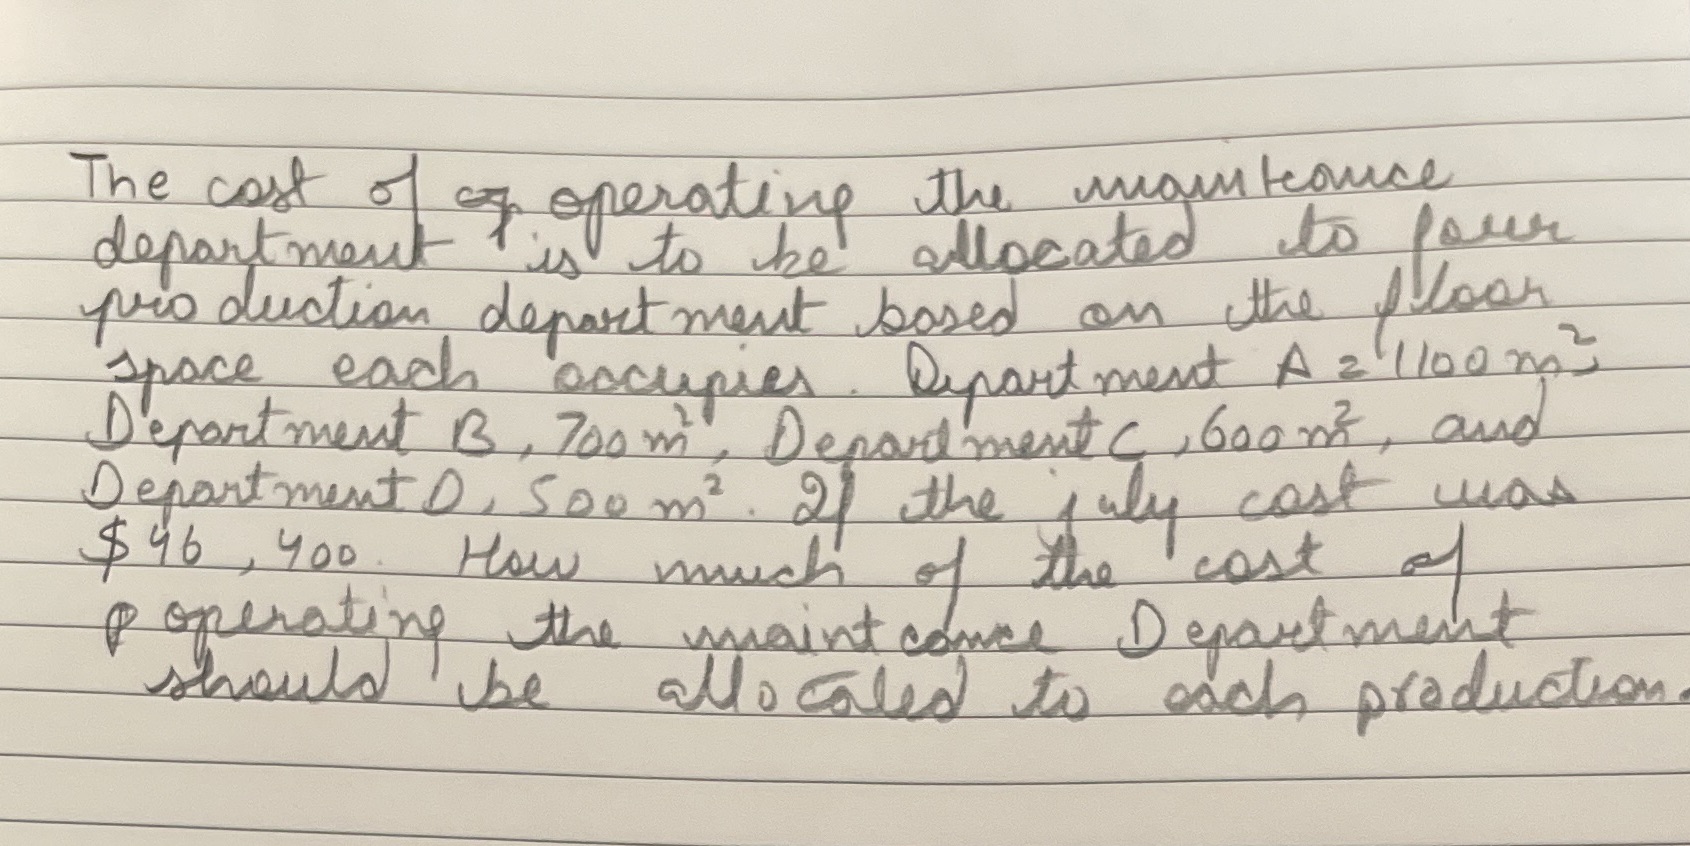 The cost of op operating the mainteance
department is to be allocated to four
production department based on the floor
space each occupies. Department A = 1100 m²
Department B, 700 m², Department C, 600 m², and
Department D, 500 m². If the july cost was
$ 46,400. How much of the cost of
operating the mainteance Department
should be allocated to each production.